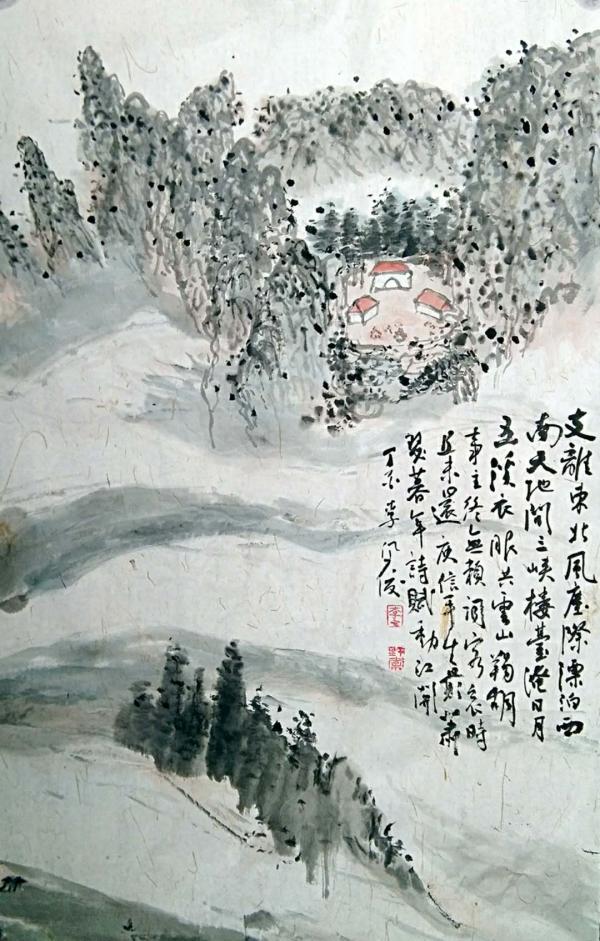 支離東北風塵際漂泊西
南天地間三峽樓臺淹日月
五溪衣服共雲山羯胡
事主終無賴詞客哀時
且未還庾信平生最蕭
瑟暮年詩賦動江關
丁亥 李